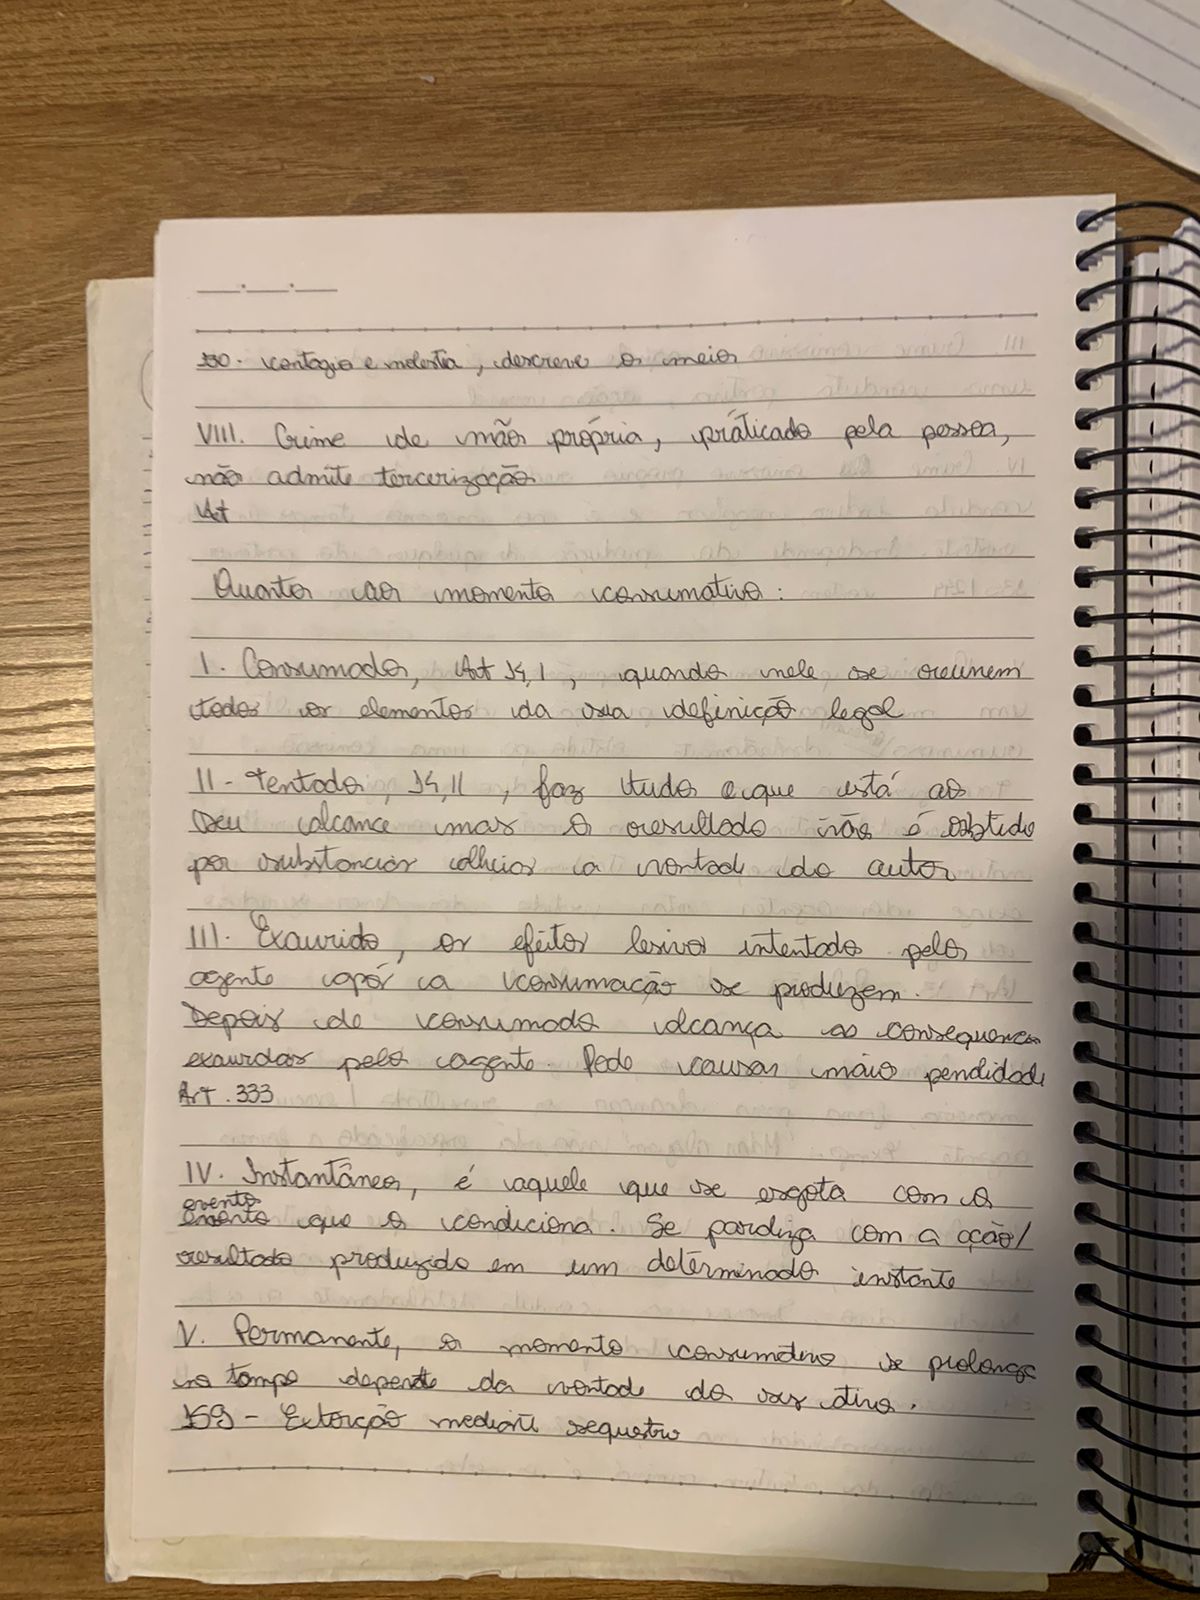 130. contagio e molestia, descreve o meio
VIII. Crime de mão própria, práticado pela pessoa,
não admite tercerização
Art
Quanto ao momento consumativo:
I. Consumado, Art 14, I, quando nele se reunem
todos os elementos da sua definição legal
II - Tentado, 14, II, faz tudo o que está ao
seu alcance mas o resultado não é obtido
por substancias alheias a vontade do autor
III. Exaurido, os efeitos lesivos intentado pelo
agente após a consumação se produzem.
Depois de consumado alcança as consequencias
exauridas pelo agente. Pode causar maio
Art. 333
IV. Instantâneo, é aquele que se esgota com o
evento
que o condiciona. Se com a ação/
resultado produzido em um determinado instante
V. Permanente, o momento consumativo se prolonga
no tempo depende da vontade do ativo.
159 - Extorção mediante sequestro